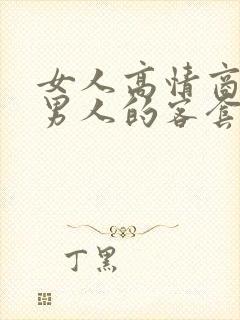 女人高情商
男人的客套
丁黑